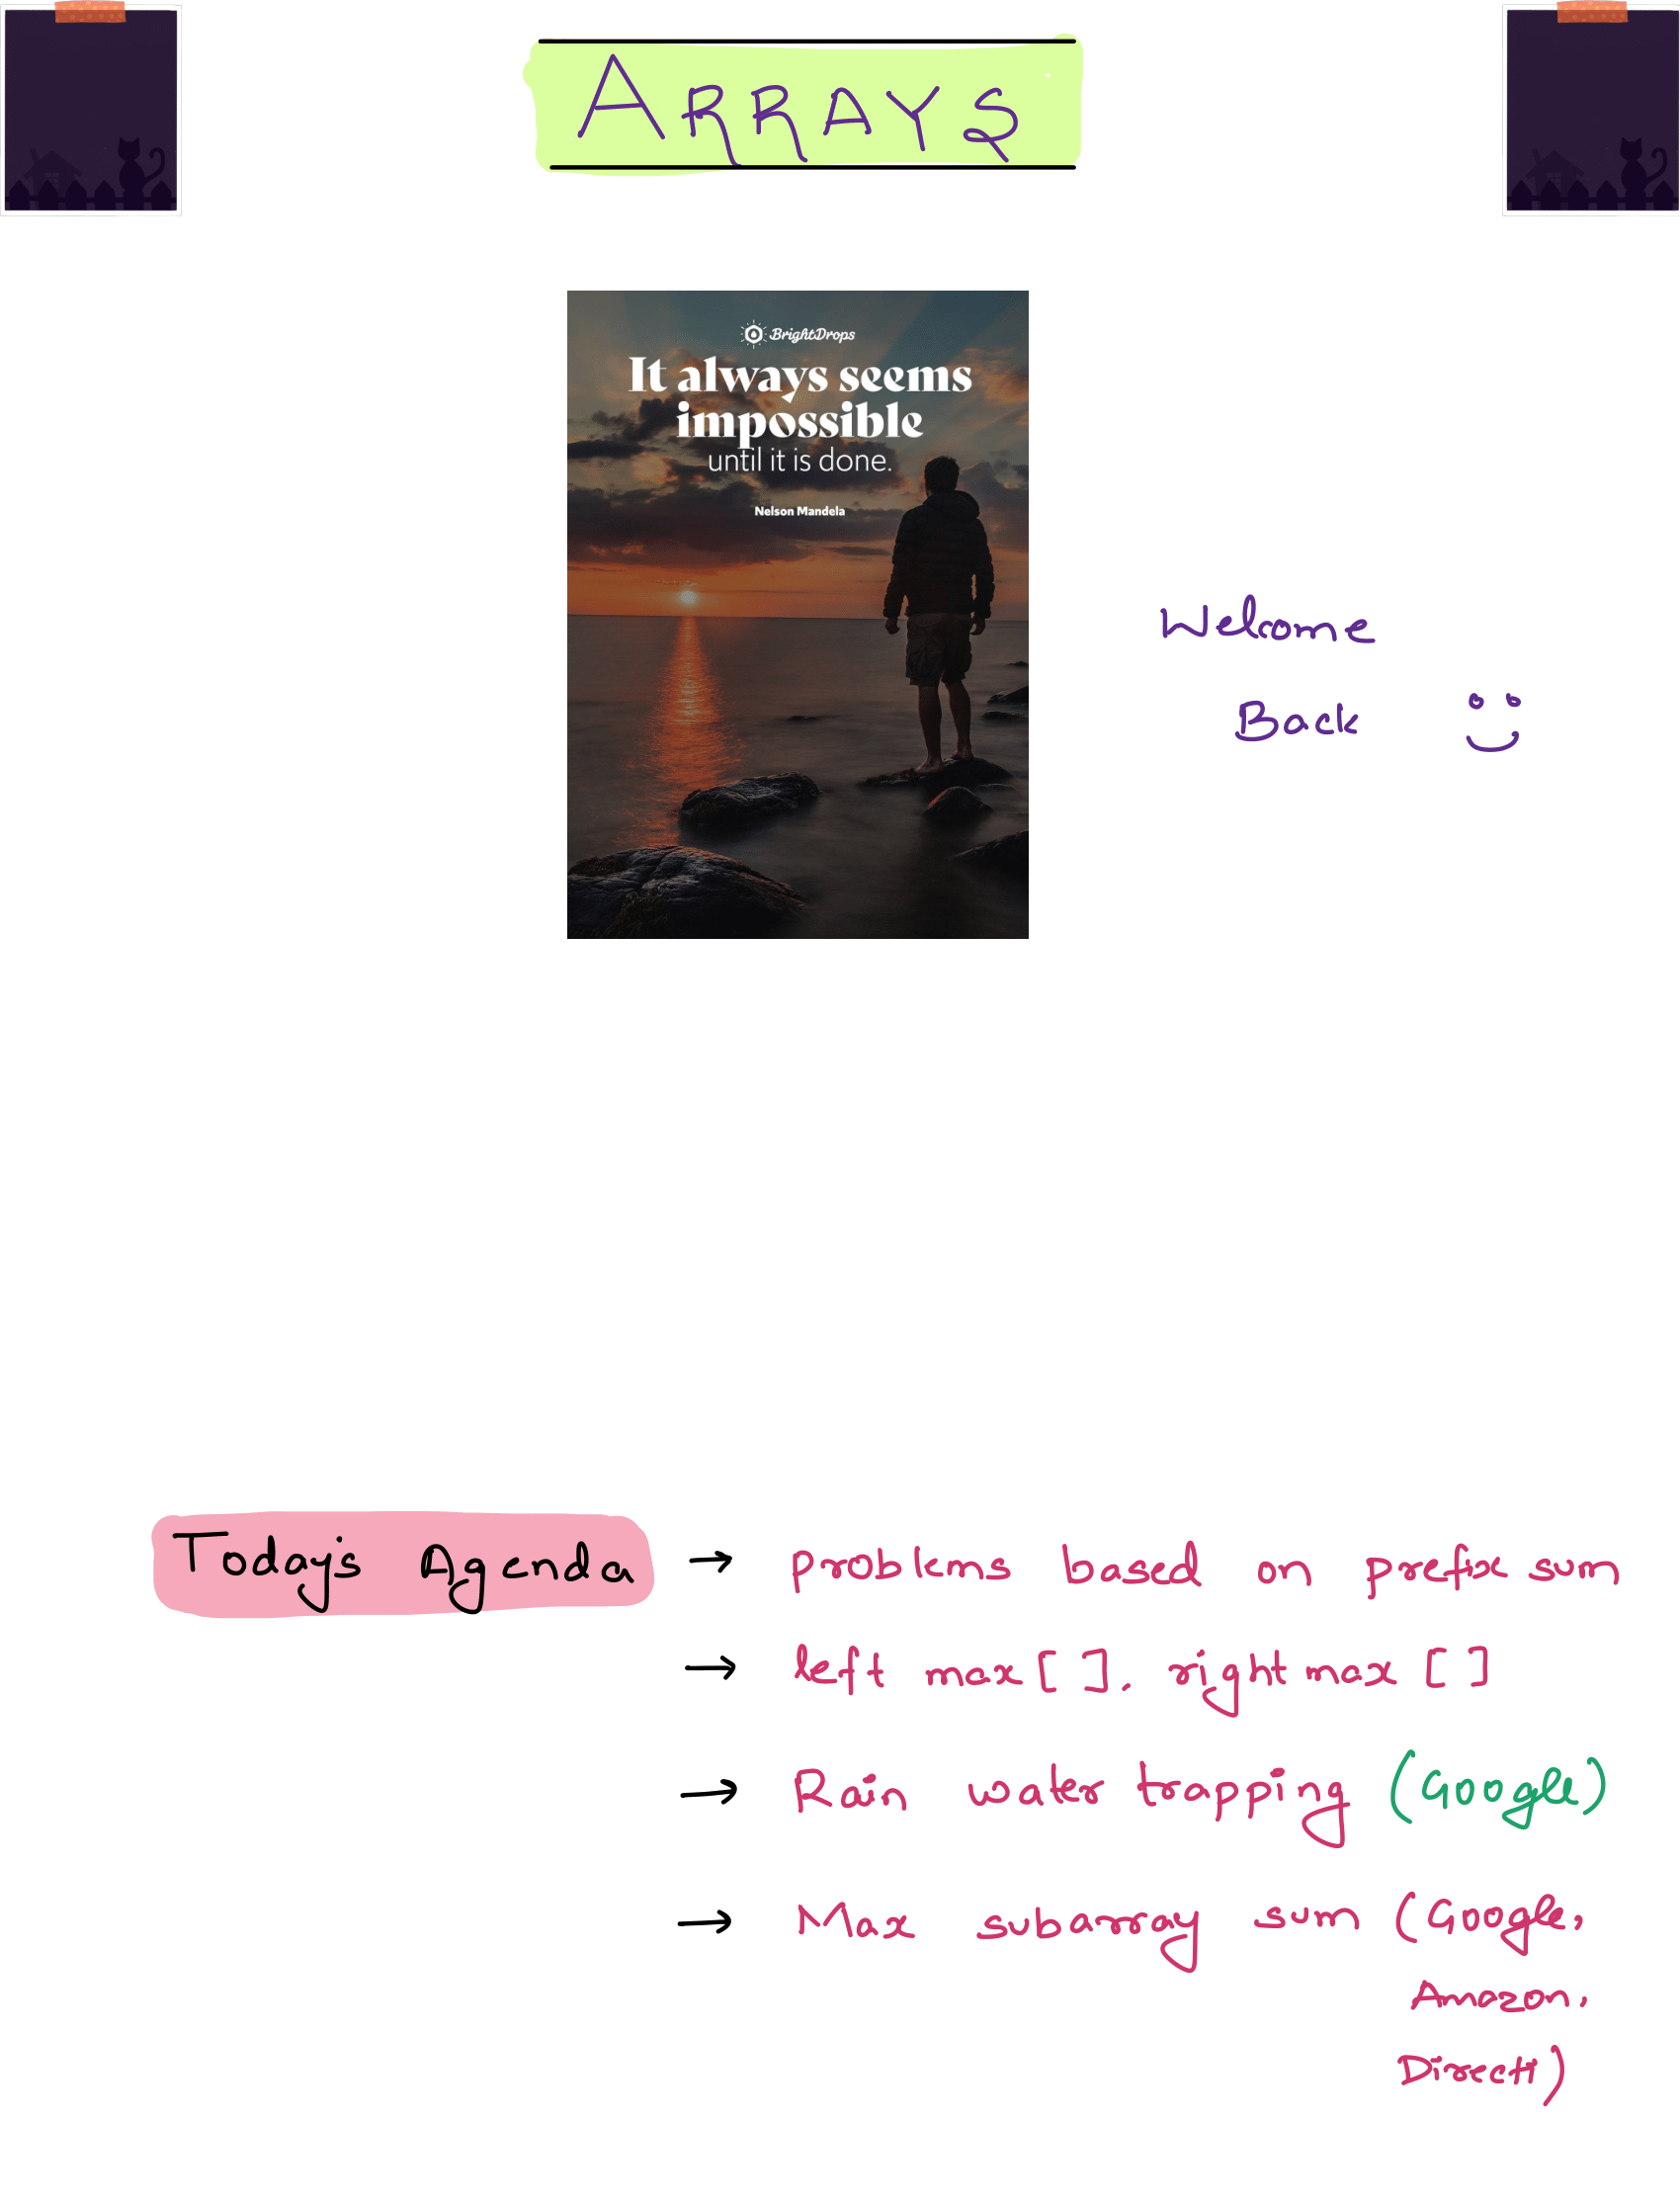 ARRAYS
BrightDrops
It always seems
impossible
until it is done.
Nelson Mandela
Welcome
Back
Today's Agenda → problems based on prefix sum
→ left max [ ], right max [ ]
→ Rain water trapping (Google)
→ Max subarray sum (Google,
Amazon,
Directi)